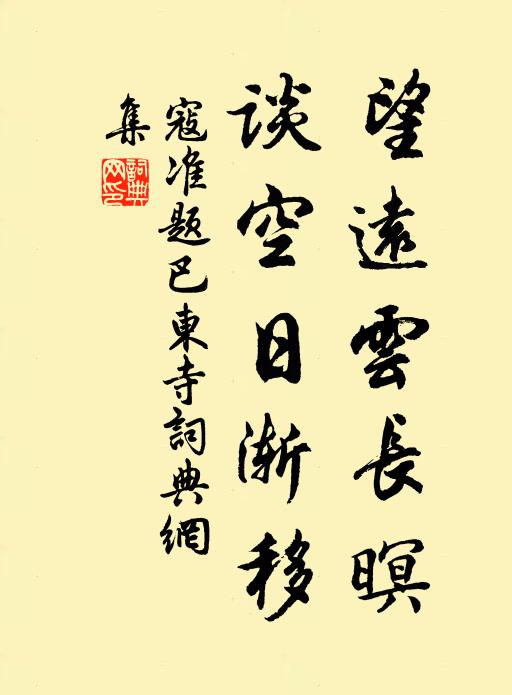 望遠雲長暝
谈空日漸移
寇准题巴東寺詞典網
集
詞典
网印